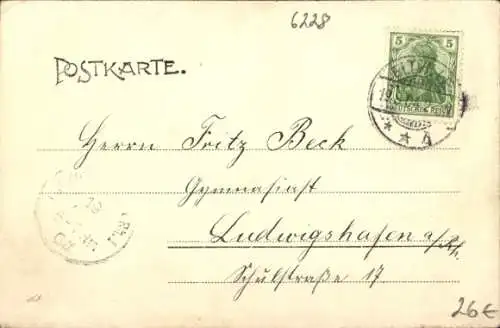 6228
POSTKARTE.
5 5
DEUTSCHES REICH
* * 4
Herrn Fritz Beck
Gymnasiast
Ludwigshafen a/Rh.
Schulstraße 17
26€